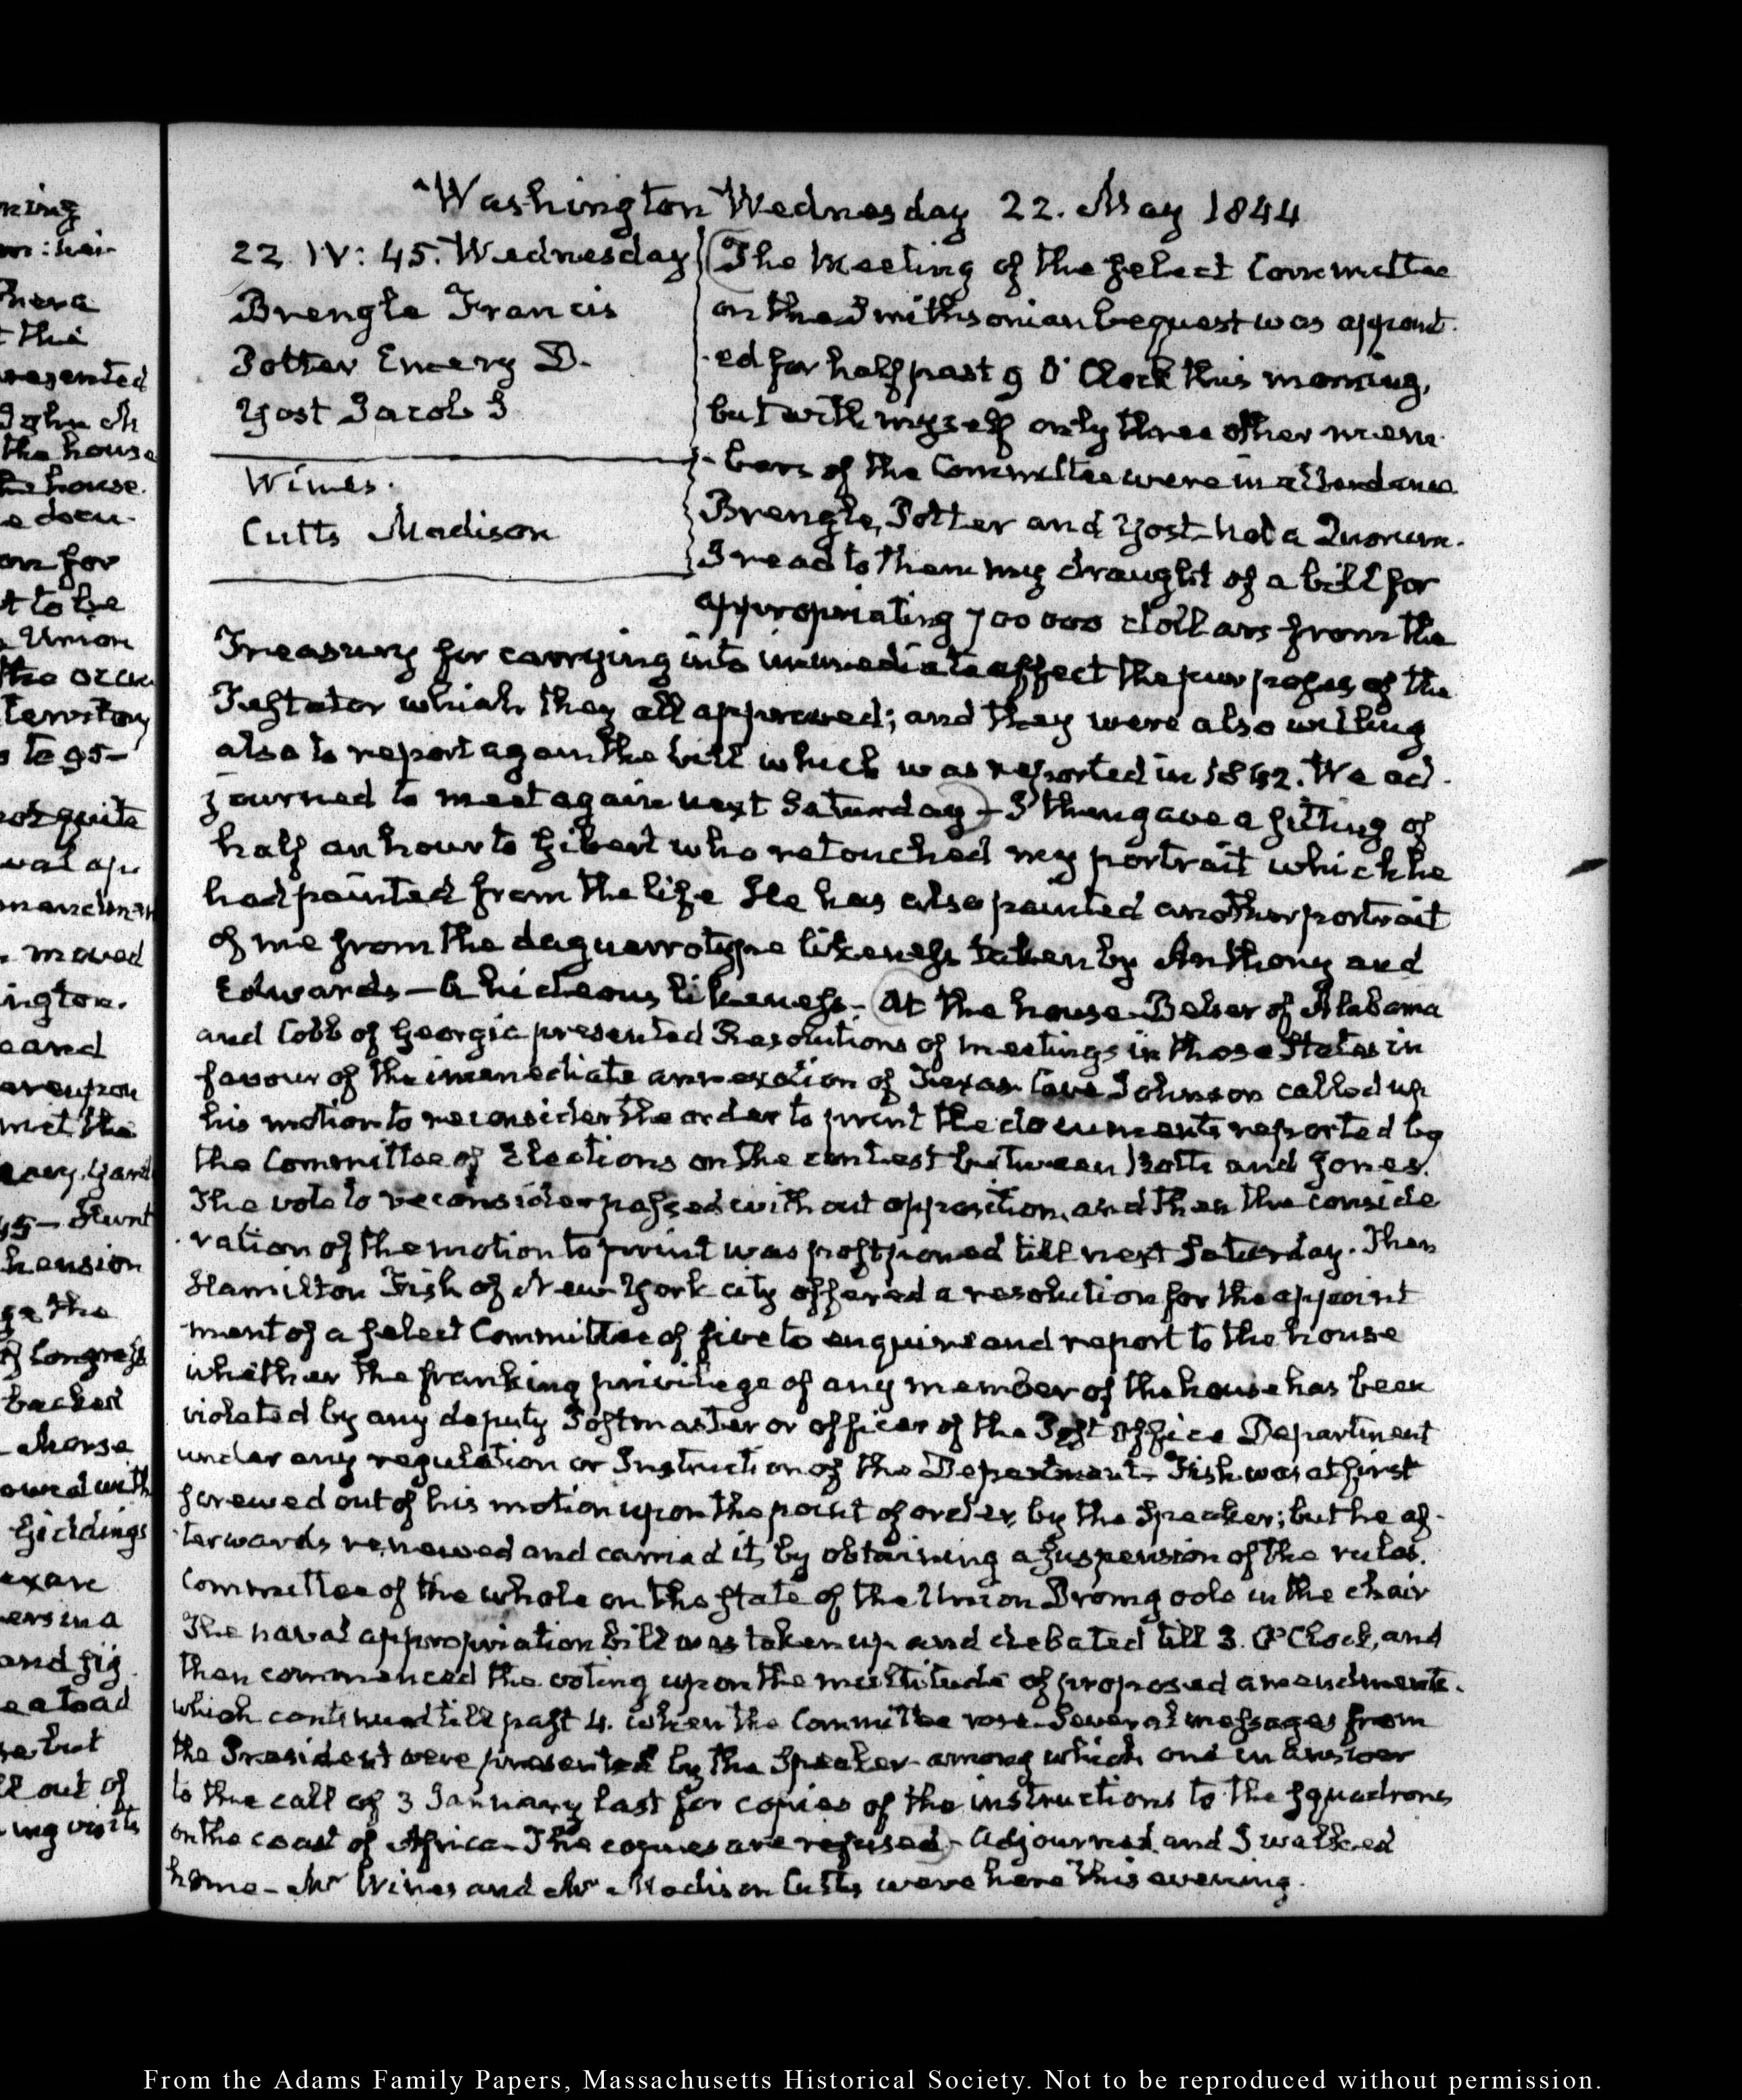 Washington Wednesday 22. May 1844
22. IV: 45. Wednesday
Brengle Francis
Potter Emery D.
Yost Jacob S
Wines.
Cutts Madison
The Meeting of the select Committee
on the Smithsonian bequest was appoint-
-ed for half past 9 O'Clock this morning,
but with myself only three other mem-
-bers of the Committee were in attendance
Brengle, Potter and Yost—not a Quorum.
I read to them my draught of a bill for
appropriating 700 000 dollars from the
Treasury for carrying into immediate effect the purposes of the
Testator which they all approved; and they were also willing
also to report again the bill which was reported in 1842. We ad-
journed to meet again next Saturday—I then gave a sitting of
half an hour to Gibert who retouched my portrait which he
had painted from the life He has also painted another portrait
of me from the daguerrotype likeness taken by Anthony and
Edwards—A hideous likeness. At the house Belser of Alabama
and Cobb of Georgia presented Resolutions of meetings in those States in
favour of the immediate annexation of Texas. Cave Johnson called up
his motion to reconsider the order to print the documents reported by
the Committee of Elections on the contest between Botts and Jones.
The vote to reconsider passed without opposition, and then the conside
-ration of the motion to print was postponed till next Saturday. Then
Hamilton Fish of New York city offered a resolution for the appoint
-ment of a select Committee of five to enquire and report to the house
whether the franking privilege of any member of the house has been
violated by any deputy Postmaster or officer of the Post Office Department
under any regulation or Instruction of the Department. Fish was at first
screwed out of his motion upon the point of order, by the Speaker; but he af-
-terwards renewed and carried it, by obtaining a suspension of the rules.
Committee of the whole on the State of the Union Dromgoole in the chair
The naval appropriation bill was taken up and debated till 3. O'Clock, and
then commenced the voting upon the multitude of proposed amendments.
which continued till past 4. when the Committee rose. Several messages from
the President were presented by the Speaker—among which one in answer
to the call of 3 January last for copies of the instructions to the squadrons
on the coast of Africa—The copies are refused—Adjourned and I walked
home—Mr Wines and Mr Madison Cutts were here this evening.
From the Adams Family Papers, Massachusetts Historical Society. Not to be reproduced without permission.